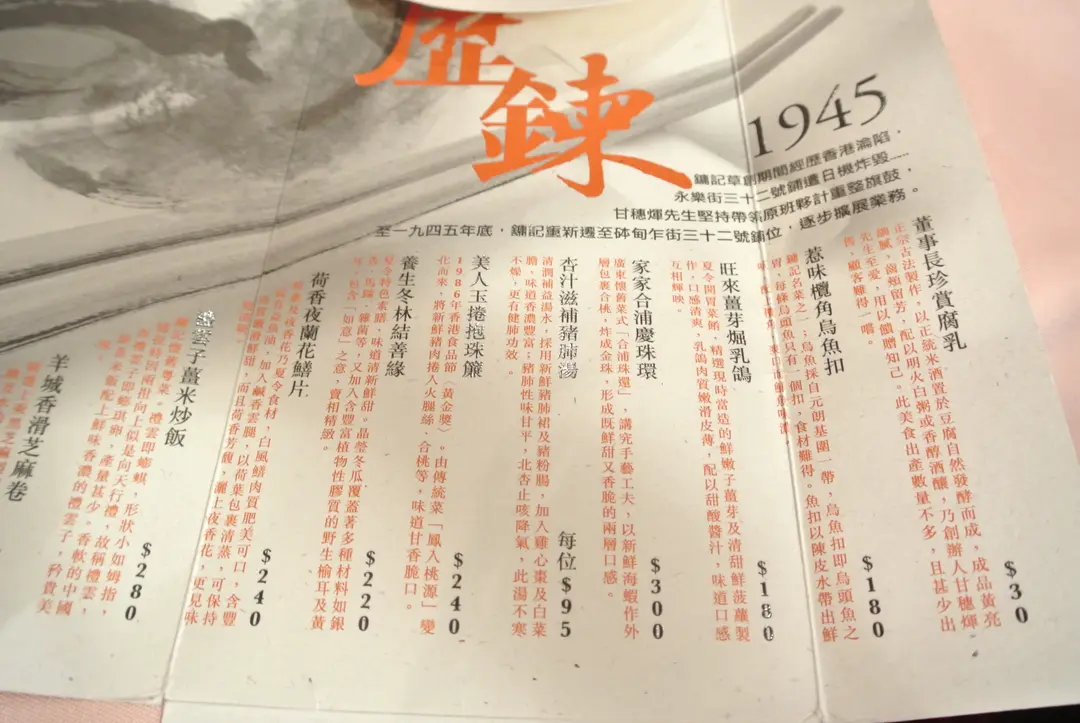 歷
鍊
1945
鏞記草創期間經歷香港淪陷，
永樂街三十二號鋪遭日機炸毀……
甘穗煇先生堅持帶領原班夥計重整旗鼓，
至一九四五年底，鏞記重新遷至砵甸乍街三十二號鋪位，逐步擴展業務。
董事長珍賞腐乳
$30
正宗古法製作，以正統米酒置於豆腐自然發酵而成，成品黃亮
細膩，齒頰留芳，配以明火白粥或香醇酒釀，乃創辦人甘穗煇
先生至愛，用以餽贈知己。此美食出產數量不多，且甚少出
售，顧客難得一嚐。
惹味欖角烏魚扣
$180
鏞記名菜之一；烏魚採自元朗基圍一帶，烏魚扣即烏頭魚之
胃，每條烏頭魚只有一個扣，食材難得。魚扣以陳皮水帶出鮮
旺來薑芽焗乳鴿
$180
夏令開胃菜餚，精選現時當造的鮮嫩子薑芽及清甜鮮菠蘿製
作，口感清爽。乳鴿肉質嫩滑皮薄，配以甜酸醬汁，味道口感
互相輝映。
家家合浦慶珠環
$300
廣東懷舊菜式「合浦珠還」，講究手藝工夫，以新鮮海蝦作外
層包裹合桃，炸成金珠，形成既鮮甜又香脆的兩層口感。
杏汁滋補豬肺湯
每位$95
清潤補益湯水，採用新鮮豬肺裙及豬粉腸，加入雞心棗及白菜
膽，味道香濃豐富；豬肺性味甘平，北杏止咳降氣，此湯不寒
不燥，更有健肺功效。
美人玉捲拖珠簾
$240
1986年香港食品節（黃金獎）。由傳統菜「鳳入桃源」變
化而來，將新鮮豬肉捲入火腿絲、合桃等，味道甘香脆口。
養生冬林結善緣
$220
夏令特色素饌，味道清新鮮甜。晶瑩冬瓜覆蓋著多種材料如銀
杏、馬蹄、雜菌等，又加入含豐富植物性膠質的野生榆耳及黃
耳，包含「如意」之意，賣相精緻。
荷香夜蘭花鱔片
$240
加入鹹香雲腿，以荷葉包裹清蒸，可保持
而且荷香芳馥，灑上夜香花，更見味
禮雲子薑米炒飯
$280
禮雲即蟛蜞，形狀小如姆指，
似是向天行禮，故稱禮雲，
即蟛蜞卵，產量甚少。香軟的中國
米飯配上鮮味香濃的禮雲子，矜貴美
羊城香滑芝麻卷